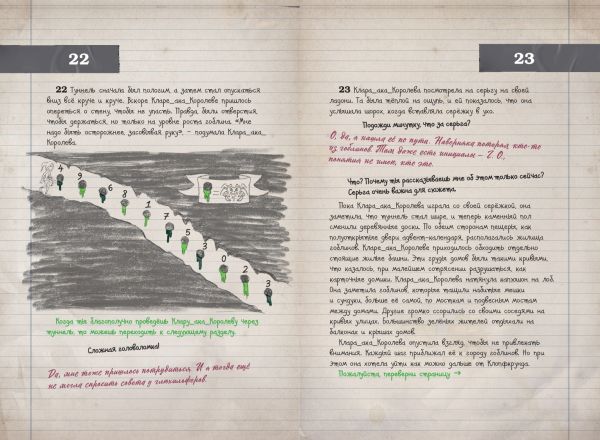 22
22 Туннель сначала был пологим, а затем стал опускаться
вниз всё круче и круче. Вскоре Кларе_ака_Королеве пришлось
опереться о стену, чтобы не упасть. Правда, были отверстия,
чтобы держаться, но только на уровне роста гоблина. «Мне
надо быть осторожнее, засовывая руку», – подумала Клара_ака_
Королева.
4
9
6
8
1
7
5
3
0
2
3
=
Когда ты благополучно проведёшь Клару_ака_Королеву через
туннель, то можешь переходить к следующему разделу.
Сложная головоломка!
Да, мне тоже пришлось потрудиться. И я тогда ещё
не могла спросить совета у гитхильферов.
23
23 Клара_ака_Королева посмотрела на серьгу на своей
ладони. Та была тёплой на ощупь, и ей показалось, что она
услышала шорох, когда вставляла серёжку в ухо.
Подожди минутку, что за серьга?
О, да, я нашла её по пути. Наверняка потерял кто-то
из гоблинов. Там даже есть инициалы – Г. О.,
понятия не имею, кто это.
Что? Почему ты рассказываешь мне об этом только сейчас?
Серьга очень важна для сюжета.
Пока Клара_ака_Королева играла со своей серёжкой, она
заметила, что туннель стал шире, и теперь каменный пол
сменили деревянные доски. По обеим сторонам пещеры, как
полуоткрытые двери адвент-календаря, располагались жилища
гоблинов. Кларе_ака_Королеве приходилось обходить отдельно
стоящие жилые башни. Эти груды домов были такими кривыми,
что казалось, при малейшем сотрясении разрушатся, как
карточные домики. Клара_ака_Королева натянула капюшон на лоб.
Она заметила гоблинов, которые тащили набитые мешки
и сундуки, больше её самой, по мосткам и подвесным мостам
между домами. Другие громко ссорились со своими соседями на
кривых улицах. Большинство зелёных жителей отдыхали на
балконах и крышах домов.
Клара_ака_Королева опустила взгляд, чтобы не привлекать
внимания. Каждый шаг приближал её к городу гоблинов. Но при
этом она хотела уйти как можно дальше от Клопфгрунда.
Пожалуйста, переверни страницу →